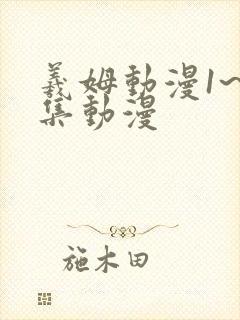 義姆動漫1~
集動漫
施木田